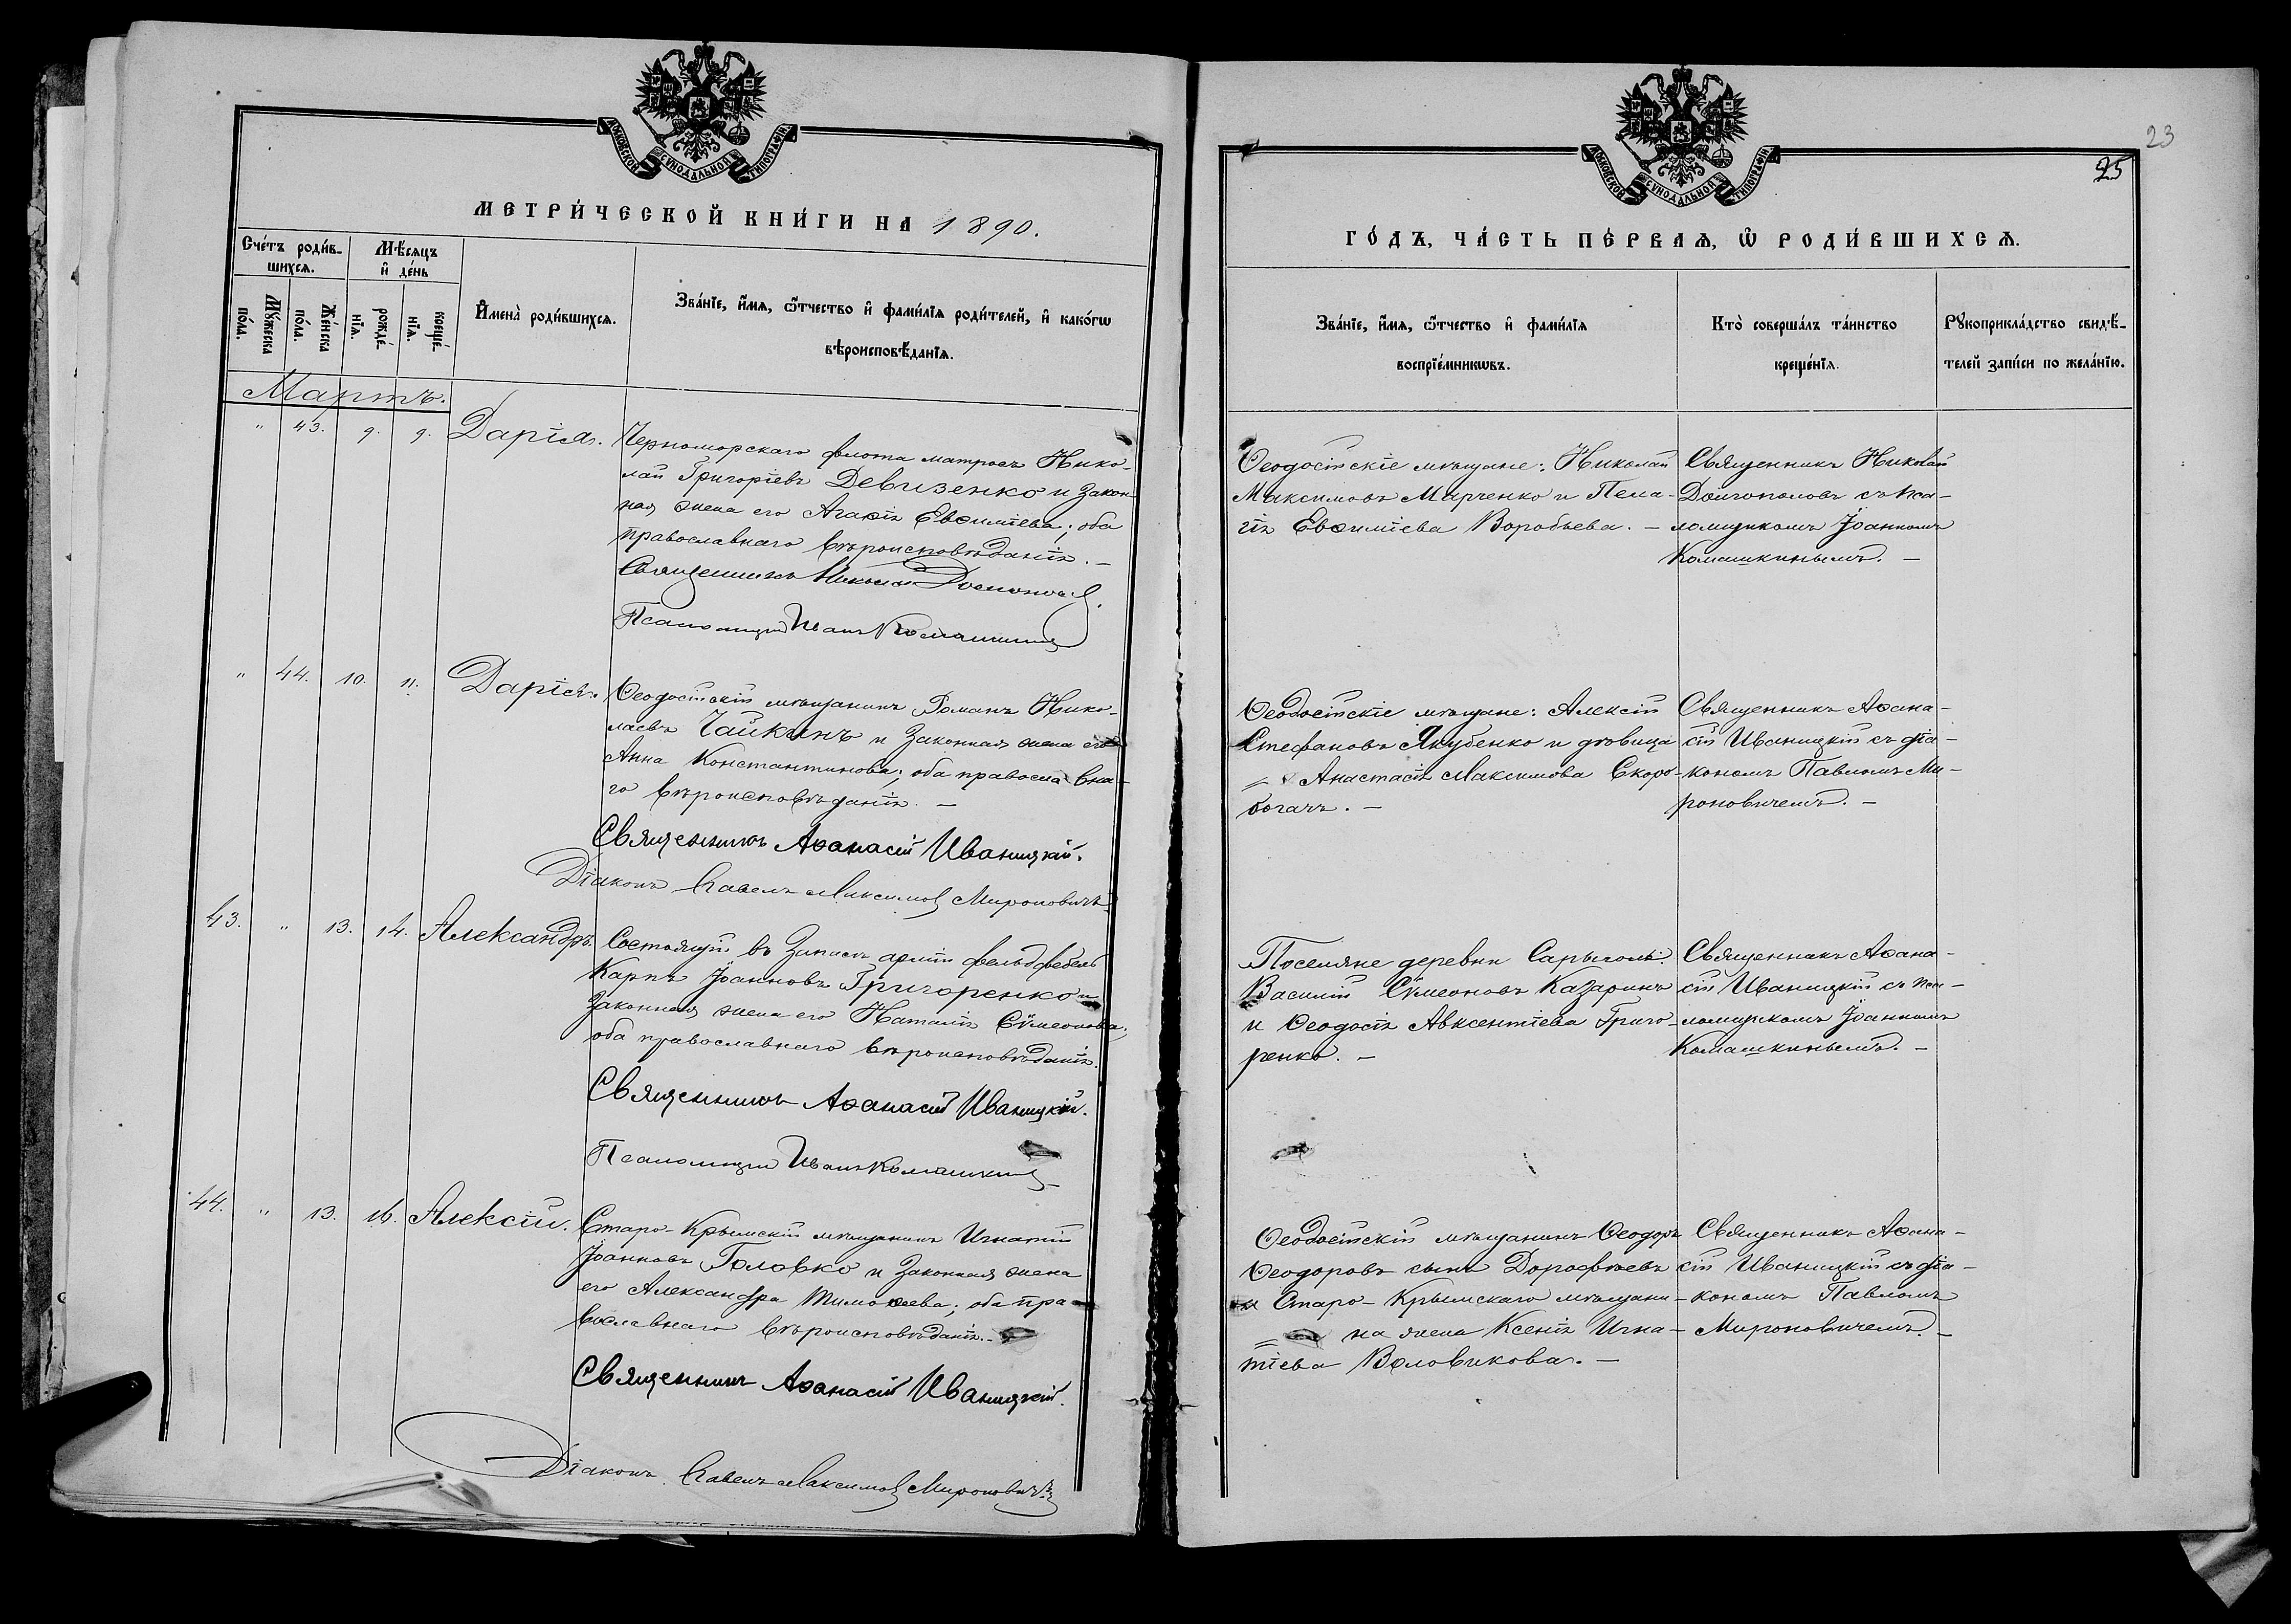 МОСКОВСКОЙ СѴНОДАЛЬНОЙ ТИПОГРАФІИ
МЕТРИ́ЧЕСКОЙ КНИ́ГИ НА 1890.
Сче́тъ роди́в-
шихсѧ.
Мѣ́сѧцъ
и҆ де́нь
Мꙋ́жеска по́ла.
Же́нска по́ла.
рожде́-нїѧ.
креще́-нїѧ.
И҆мена̀ роди́вшихсѧ.
Зва́нїе, и҆́мѧ, ѻ҆́тчество и҆ фами́лїѧ роди́телей, и҆ како́гѡ
вѣроисповѣ́данїѧ.
Мартъ.
" 43. 9. 9. Дарія. Черноморскаго флота матросъ Нико-
лай Григоріевъ Девизенко и закон-
ная жена его Агаѳія Евѳиміева; оба
православнаго вѣроисповѣданія. –
Священникъ Николай
Псаломщикъ Иванъ Комашкинъ
" 44. 10. 11. Дарія. Ѳеодосійскій мѣщанинъ Романъ Нико-
лаевъ Чайкинъ и законная жена его
Анна Константинова; оба православна-
го вѣроисповѣданія. –
Священникъ Аѳанасій Иваницкій.
Діаконъ Павелъ Максимовъ Мироновичъ
43. " 13. 14. Александръ. Состоящій въ запасѣ арміи фельдфебель
Карпъ Іоанновъ Григоренко и
законная жена его Наталія Сѵмеонова;
оба православнаго вѣроисповѣданія.
Священникъ Аѳанасій Иваницкій.
Псаломщикъ Иванъ Комашкинъ
44. " 13. 16. Алексій. Старо-Крымскій мѣщанинъ Игнатій
Іоанновъ Головко и законная жена
его Александра Тимоѳеева; оба пра-
вославнаго вѣроисповѣданія. –
Священникъ Аѳанасій Иваницкій.
Діаконъ Павелъ Максимовъ Мироновичъ
23
25
МОСКОВСКОЙ СѴНОДАЛЬНОЙ ТИПОГРАФІИ
ГО́ДЪ, ЧА́СТЬ ПЕ́РВАѦ, Ѡ҆ РОДИ́ВШИХСѦ.
Зва́нїе, и҆́мѧ, ѻ҆́тчество и҆ фами́лїѧ
воспрїе́мникѡвъ.
Кто̀ соверша́лъ та́инство
креще́нїѧ.
Рꙋкоприкла́дство свидѣ́-
телей за́писи по жела́нїю.
Ѳеодосійскіе мѣщане: Николай
Максимовъ Марченко и Пела-
гія Евѳиміева Воробьева. –
Священникъ Николай
Долгополовъ съ пса-
ломщикомъ Іоанномъ
Комашкинымъ. –
Ѳеодосійскіе мѣщане: Алексій
Стефановъ Якубенко и дѣвица
Анастасія Максимова Скоро-
богачъ. –
Священникъ Аѳана-
сій Иваницкій съ діа-
кономъ Павломъ Ми-
роновичемъ. –
Поселяне деревни Сарыголь:
Василій Сѵмеоновъ Казаринъ
и Ѳеодосія Авксентіева Григо-
ренко. –
Священникъ Аѳана-
сій Иваницкій съ пса-
ломщикомъ Іоанномъ
Комашкинымъ. –
Ѳеодосійскій мѣщанинъ Ѳеодоръ
Ѳеодоровъ сынъ Дорофѣевъ
и Старо-Крымскаго мѣщани-
на жена Ксенія Игна-
тіева Воловикова. –
Священникъ Аѳана-
сій Иваницкій съ діа-
кономъ Павломъ
Мироновичемъ. –